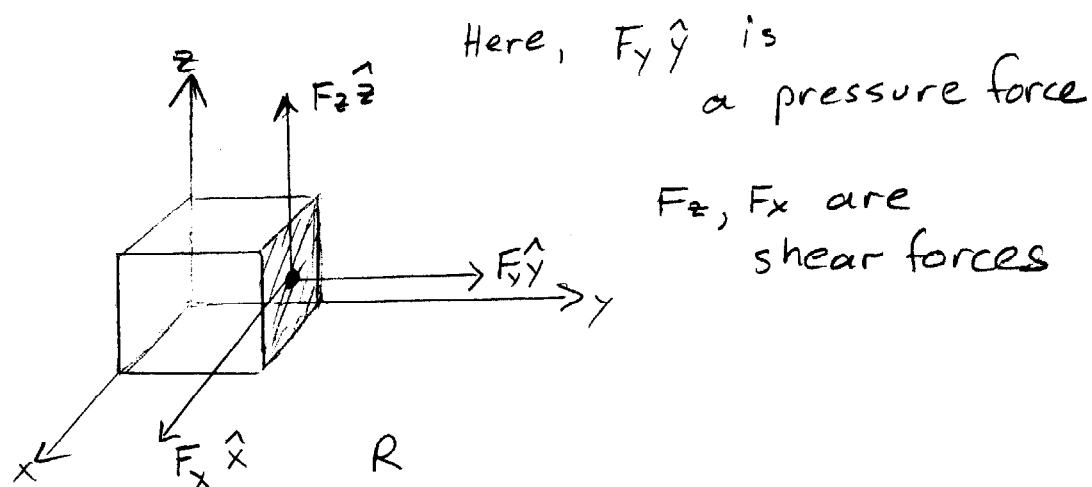 Here, F_y ŷ is
a pressure force
z
F_z ẑ
F_z, F_x are
shear forces
F_y ŷ
y
x
F_x x̂
R